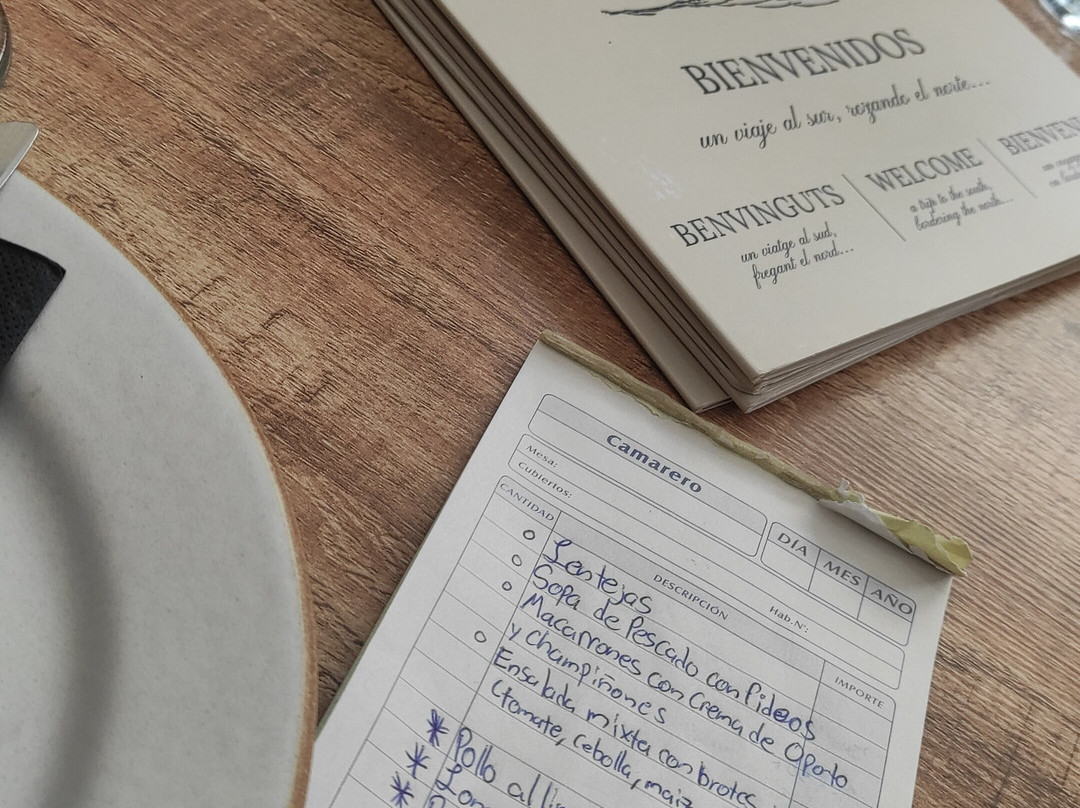 BIENVENIDOS
un viaje al sur, rozando el norte...
BENVINGUTS
un viatge al sud,
fregant el nord...
WELCOME
a trip to the south,
bordering the north...
camarero
Mesa:
Cubiertos:
DÍA MES AÑO
Hab.Nº:
CANTIDAD DESCRIPCIÓN IMPORTE
o Lentejas
o Sopa de Pescado con fideos
o Macarrones con Crema de Oporto
y champiñones
o Ensalada mixta con brotes
(tomate, cebolla, maiz
* Pollo al
*
*